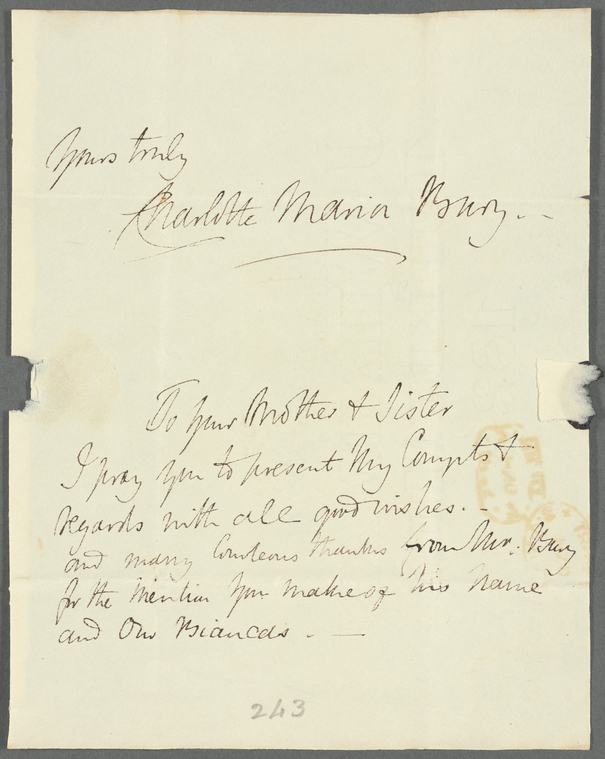 Yours truly
Charlotte Maria Bury. -
To Your Mother & Sister
I pray you to present my Compts &
regards with all good wishes. -
and many Courteous thanks from Mr. Bury
for the Mention You make of his Name
and Our Biancas. —
243